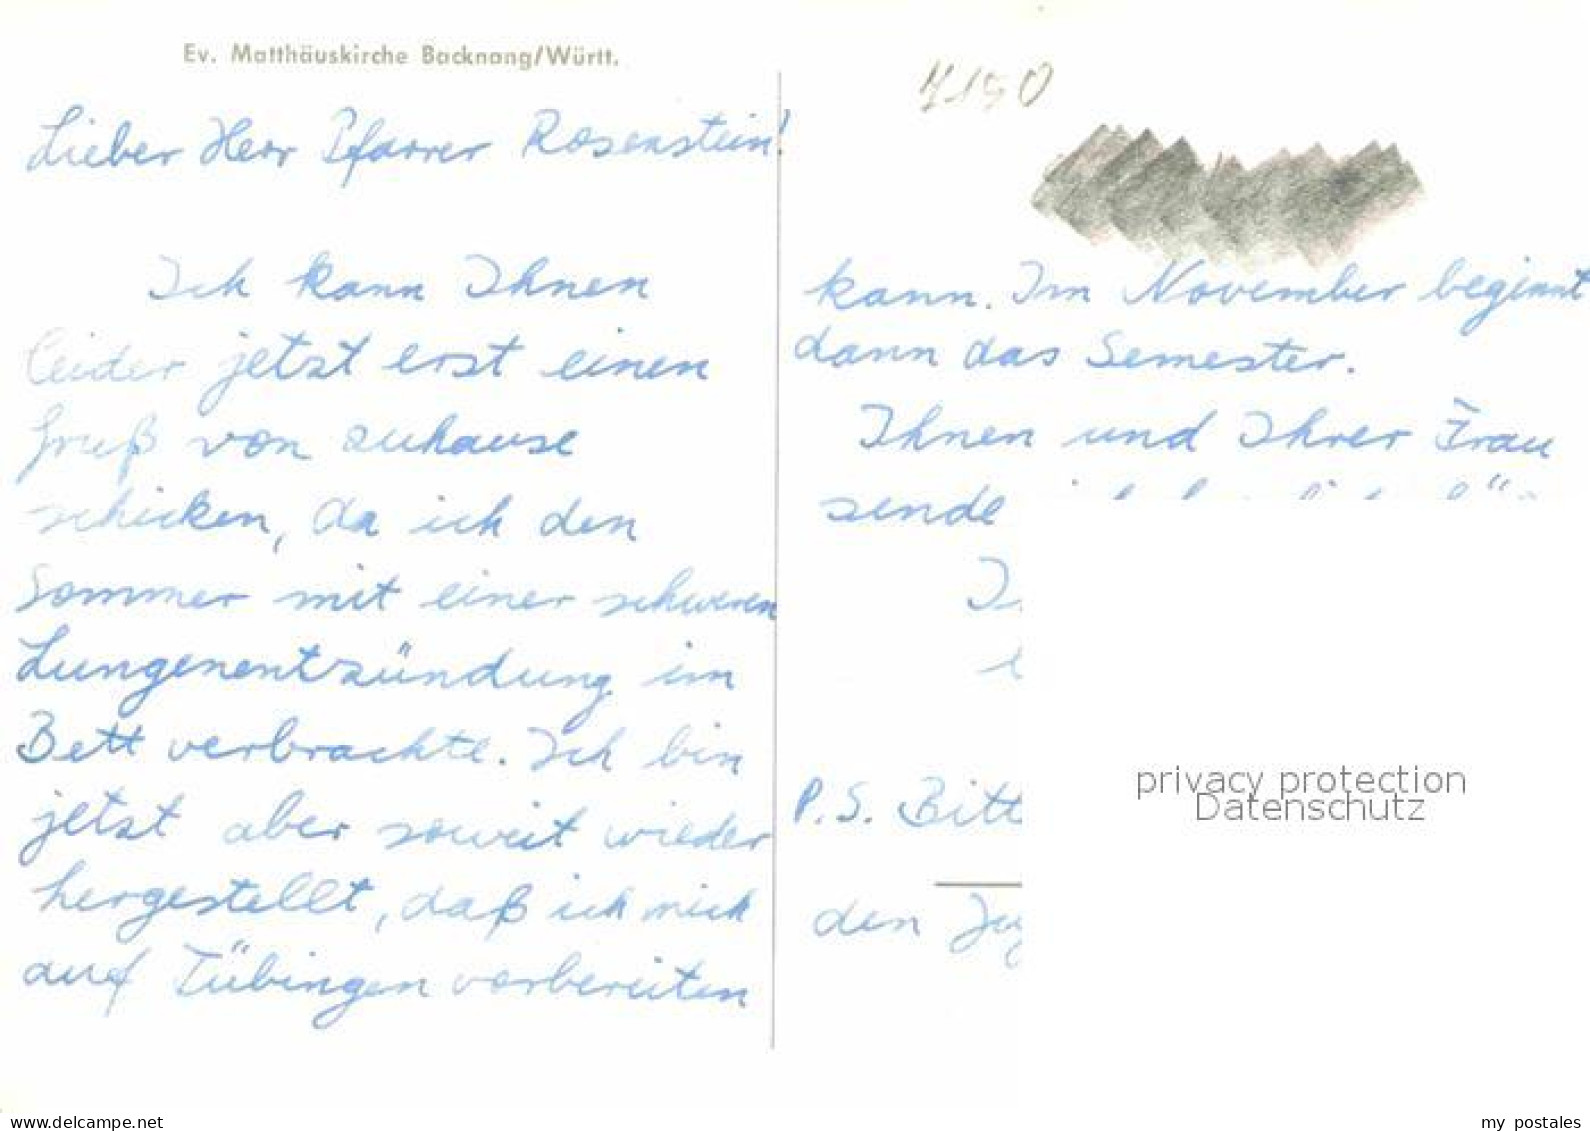 Ev. Matthäuskirche Backnang/Württ.
Lieber Herr Pfarrer Rosenstein!
Ich kann Ihnen
leider jetzt erst einen
Gruß von zuhause
schicken, da ich den
Sommer mit einer schweren
Lungenentzündung im
Bett verbrachte. Ich bin
jetzt aber soweit wieder
hergestellt, daß ich mich
auf Tübingen vorbereiten
7150
kann. Im November beginnt
dann das Semester.
Ihnen und Ihrer Frau
sende
P.S. Bitt
den
privacy protection
Datenschutz
www.delcampe.net
my_postales